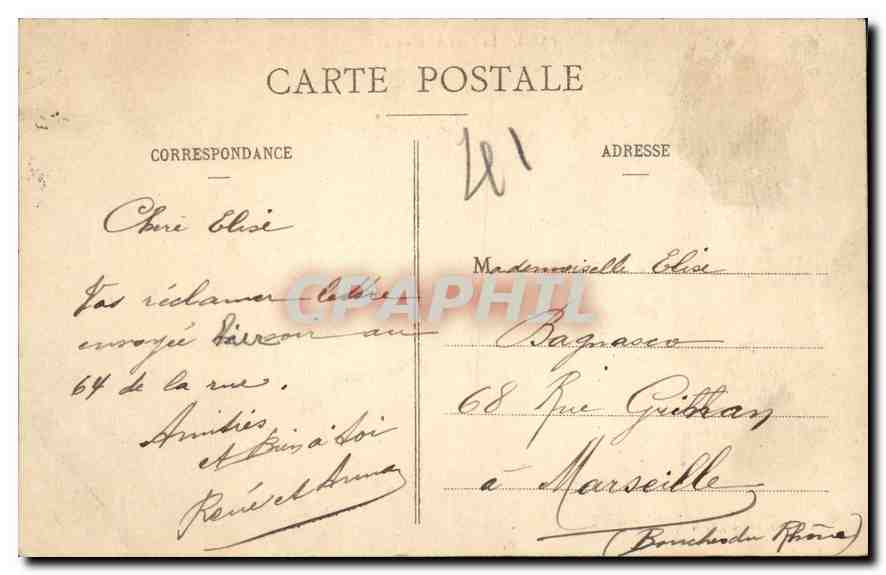 CARTE POSTALE
CORRESPONDANCE
Cheré Elisé
Vas réclamer lettre
envoyée hier soir au
64 de la rue.
Amitiés
et Bien à toi
René et Anna
ADRESSE
Mademoiselle Elise
Bagnasco
68 Rue
à Marseille
(Bouches du Rhône)
CPAPHIL